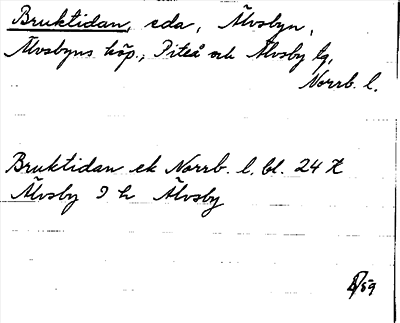 Bruktidan, eda, Älvsbyn,
Älvsbyns köp., Piteå och Älvsby tg,
Norrb. l.
Bruktidan ek Norrb. l. bl. 24 H
Älvsby 9 h Älvsby
/59